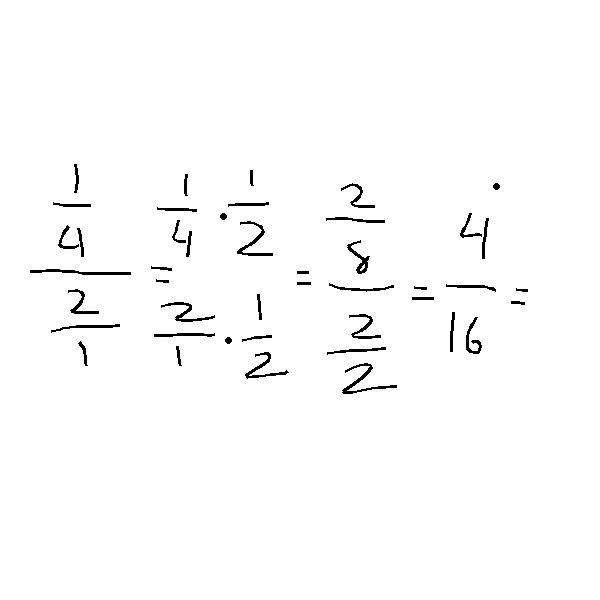 1/4 / 2/1 = 1/4 · 1/2 / 2/1 · 1/2 = 2/8 / 2/2 = 4/16 =